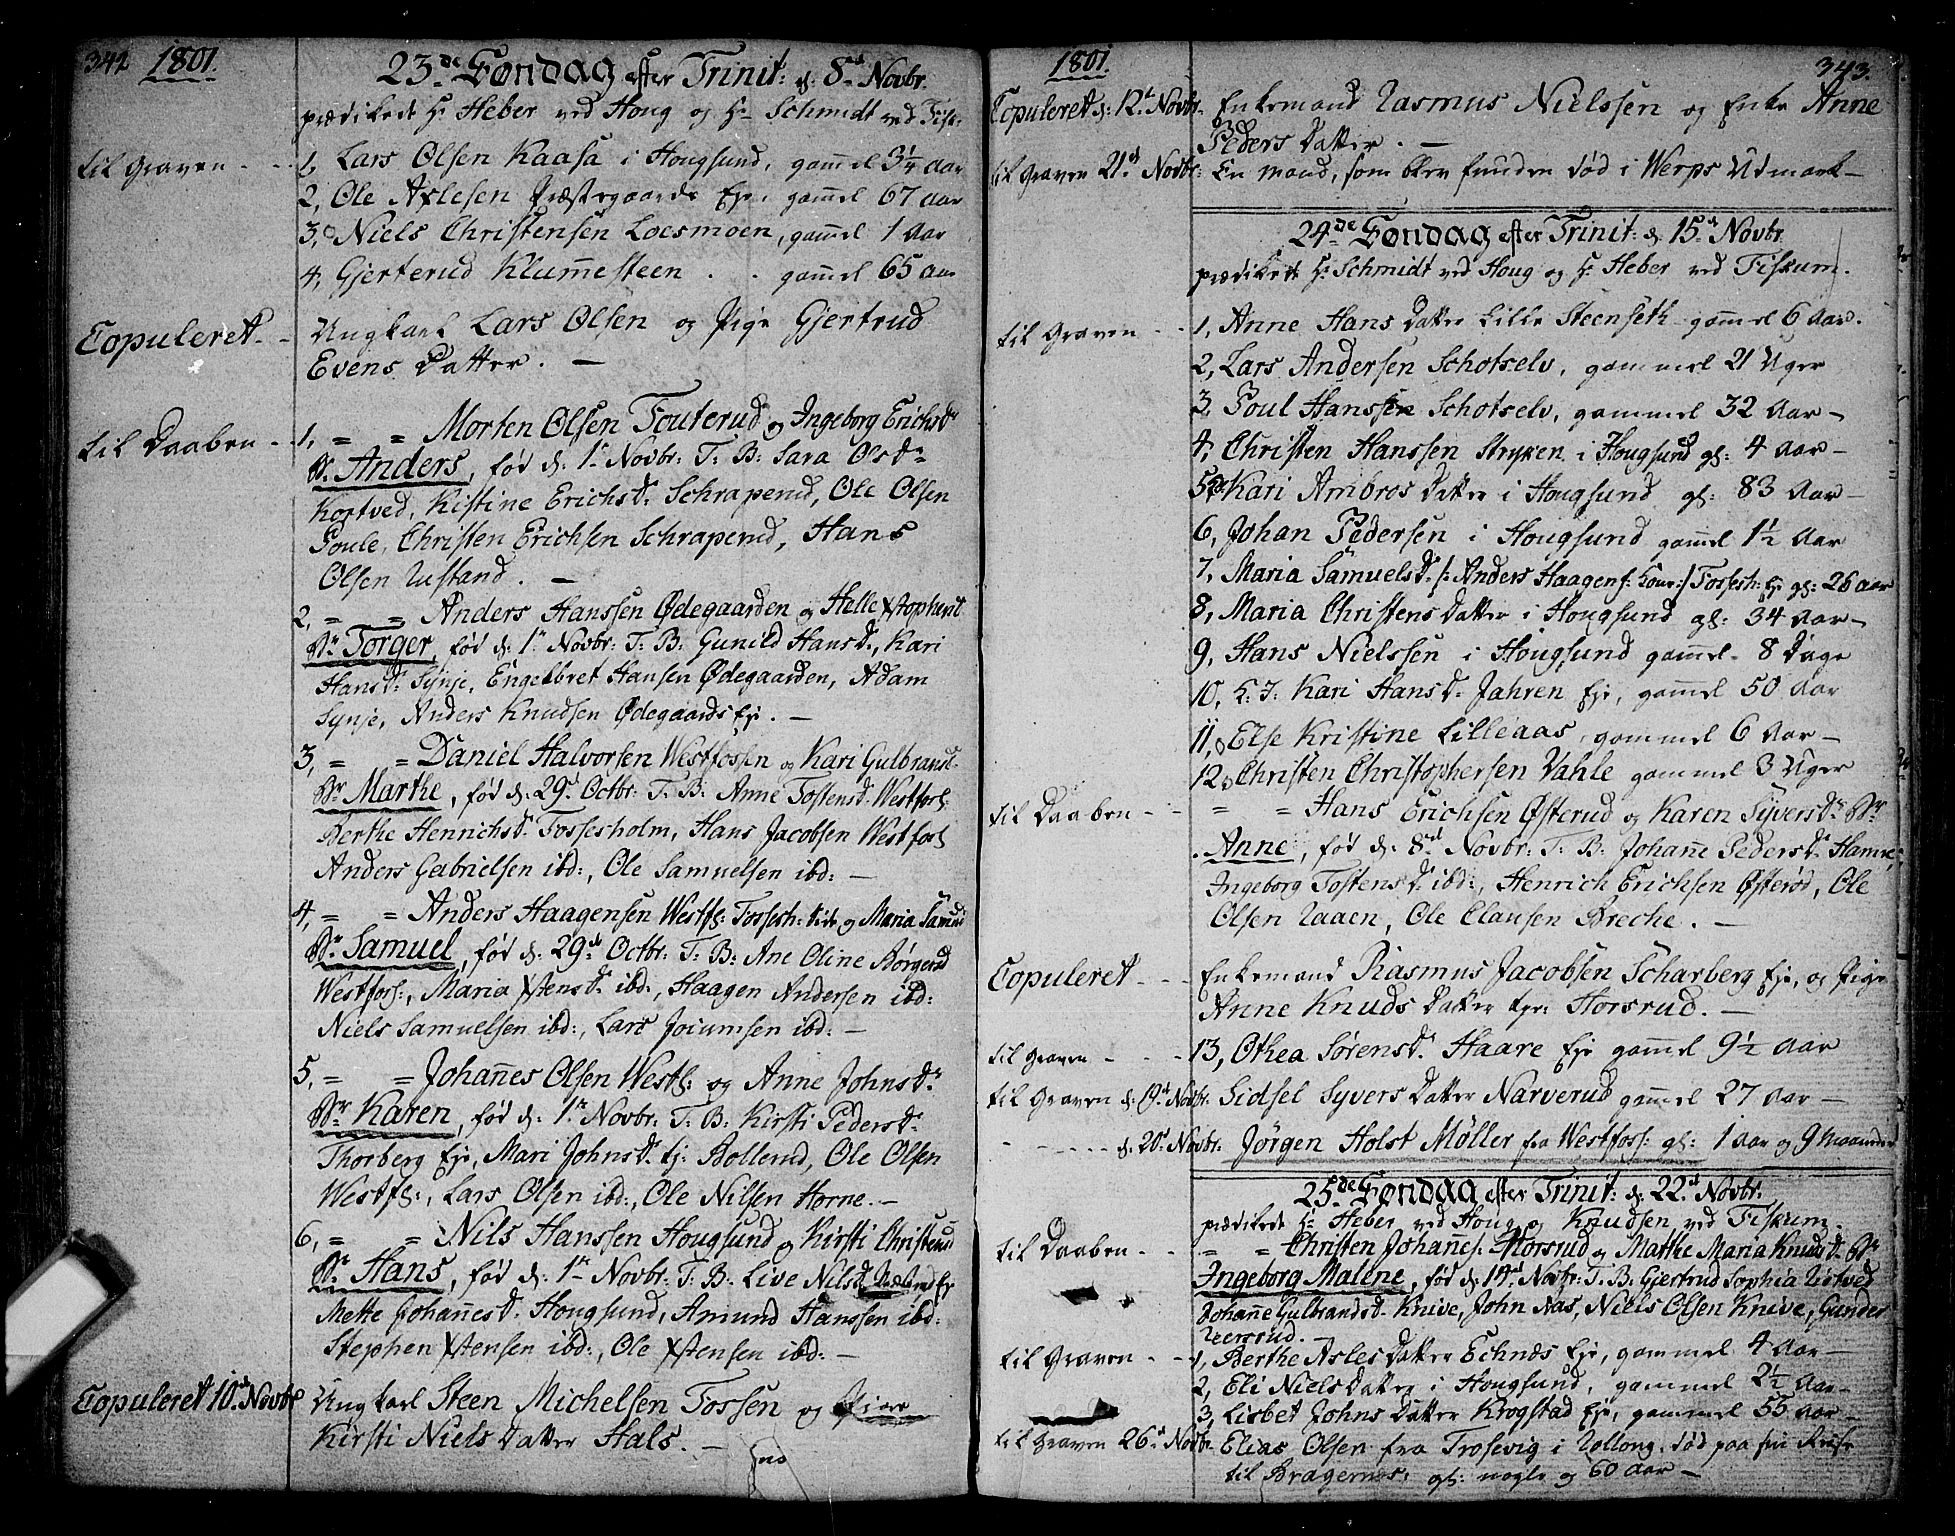 342 1801.
23de Søndag efter Trinit: d: 8de Novbr.
prædikede Hr Heber ved Houg og Hr Schmidt ved Fisk:
til Graven - - 1, Lars Olsen Kaasa i Hougsund, gammel 3 1/4 aar
2, Ole Axlesen Præstegaards Eje, gammel 67 aar
3, Niels Christensen Loesmoen, gammel 1 Aar
4, Gjerterud Klumesteen . . gammel 65 aar
Copuleret - - Ungkarl Lars Olsen og Pige Gjertrud
Evens Datter. —
til Daaben - - 1, = = Morten Olsen Fouterud og Ingeborg Erichsdr
Br. Anders, fød d: 1. Novbr: T: B: Sara Olsdr
Kortved, Kistine Erichsdr Schraperud, Ole Olsen
Poule, Christen Erichsen Schraperud, Hans
Olsen Rustand. —
2, = = Anders Hanssen Ødegaarden og Helle Xstophersd
Br. Torger, fød d: 1. Novbr: T: B: Gunild Hansd., Kari
Hansd. Synje, Engelbret Hansen Ødegaarden, Adam
Synje, Anders Knudsen Ødegaards Eje. —
3, = = Daniel Halvorsen Westfossen og Kari Gulbransd.
Br. Marthe, fød d: 29. Octbr: T: B: Anne Tostensd. Westfos:
Berthe Henrichsd. Fossesholm, Hans Jacobsen Westfos
Anders Gabrielsen ibd:, Ole Samuelsen ibd: —
4, = = Anders Haagensen Westfs: Fossesh: Eie og Maria Samuelsd
Br. Samuel, fød d: 29de Octbr: T: B: Ane Oline Børgersd
Westfos:, Maria Xstensd. ibd:, Haagen Andersen ibd:
Niels Samuelsen ibd:, Lars Joiumsen ibd: —
5, = = Johannes Olsen Westf: og Anne Johnsd.
Br. Karen, fød d: 1. Novbr: T: B: Kirsti Pedersd.
Thorberg Eje, Mari Johnsd. Ej: Bollerud, Ole Olsen
Westfs:, Lars Olsen ibd:, Ole Nilsen Horne. —
6, = = Nils Hanssen Hougsund og Kirsti Christensd
Br. Hans, fød d: 1. Novbr: T: B: Live Nilsd. Eje
Mette Johannesd. Hougsund, Amund Hanssen ibd:
Stephen Xstensen ibd:, Ole Xstensen ibd: —
Copuleret 10de Novbr Ungkarl Steen Michelsen Fossen og Pige
Kirsti Niels Datter Hals. —
1801. 343.
Copuleret d: 12. Novbr. Enkemand Rasmus Nielssen og Enke Anne
Peders Datter. —
til Graven 21de Novbr: En mand, som blev funden død i Werps Udmark —
24de Søndag efter Trinit: d: 15de Novbr
prædikede Hr Schmidt ved Houg og Hr Heber ved Fiskum.
til Graven - - 1, Anne Hans Datter Lille Steenseth gammel 6 Aar.
2, Lars Andersen Schotselv, gammel 21 Uger
3, Poul Hanssen Schotselv, gammel 32 Aar —
4, Christen Hanssen Stryken i Hougsund gl: 4 Aar —
5, Kari Ambros Datter i Hougsund gl: 83 Aar —
6, Johan Pedersen i Hougsund gammel 1 1/2 Aar
7, Maria Samuelsd. /: Anders Haagens: Kone :/ Fossesh: Eje gl: 26 aar
8, Maria Christens Datter i Hougsund gl: 34 Aar —
9, Hans Nielssen i Hougsund gammel 8 Dage
10, Kari Hansd. Jahren Eje, gammel 50 Aar
11, Else Kristine Lilleaas, gammel 6 Aar —
12, Christen Christophersen Dahle gammel 3 Uger
til Daaben - - = = Hans Erichsen Østerud og Karen Syversdr Br
Anne, fød d: 8de Novbr: T: B: Johanne Pedersdr Hamre,
Ingeborg Tostensd. ibd:, Henrich Erichsen Østerød, Ole
Olsen Raaen, Ole Clausen Breche. —
Copuleret - - - Enkemand Rasmus Jacobsen Scharberg Eje, og Pige
Anne Knuds Datter Eje: Horsrud. —
til Graven - - - 13, Othea Sørensd. Haare Eje gammel 9 1/2 Aar
til Graven d: 19de Novbr. Sidsel Syvers Datter Narverud gammel 27 Aar —
- - - - - d: 20de Novbr. Jørgen Holst Møller fra Westfos: gl: 1 Aar og 9 Maaneder
25de Søndag efter Trinit: d: 22de Novbr.
prædikede Hr Heber ved Houg og Knudsen ved Fiskum.
til Daaben - - = = Christen Johannes: Horsrud og Marthe Maria Knudsd. Br
Ingeborg Malene, fød d: 14de Novbr: T: B: Gjertrud Sophia Ristved
Johanne Gulbrandsd. Knive, John Aas, Niels Olsen Knive, Gunder
Ueersrud. —
til Graven - - 1, Berthe Asles Datter Echnæs Eje, gammel 4 Aar —
2, Eli Niels Datter i Hougsund, gammel 2 1/2 Aar —
3, Lisbet Johns Datter Krogstad Eje, gammel 55 Aar —
til Graven 26de Novbr. Elias Olsen fra Trosevig i Rollong. død paa sin Reise
til Bragernæs, gl: nogle og 60 aar —